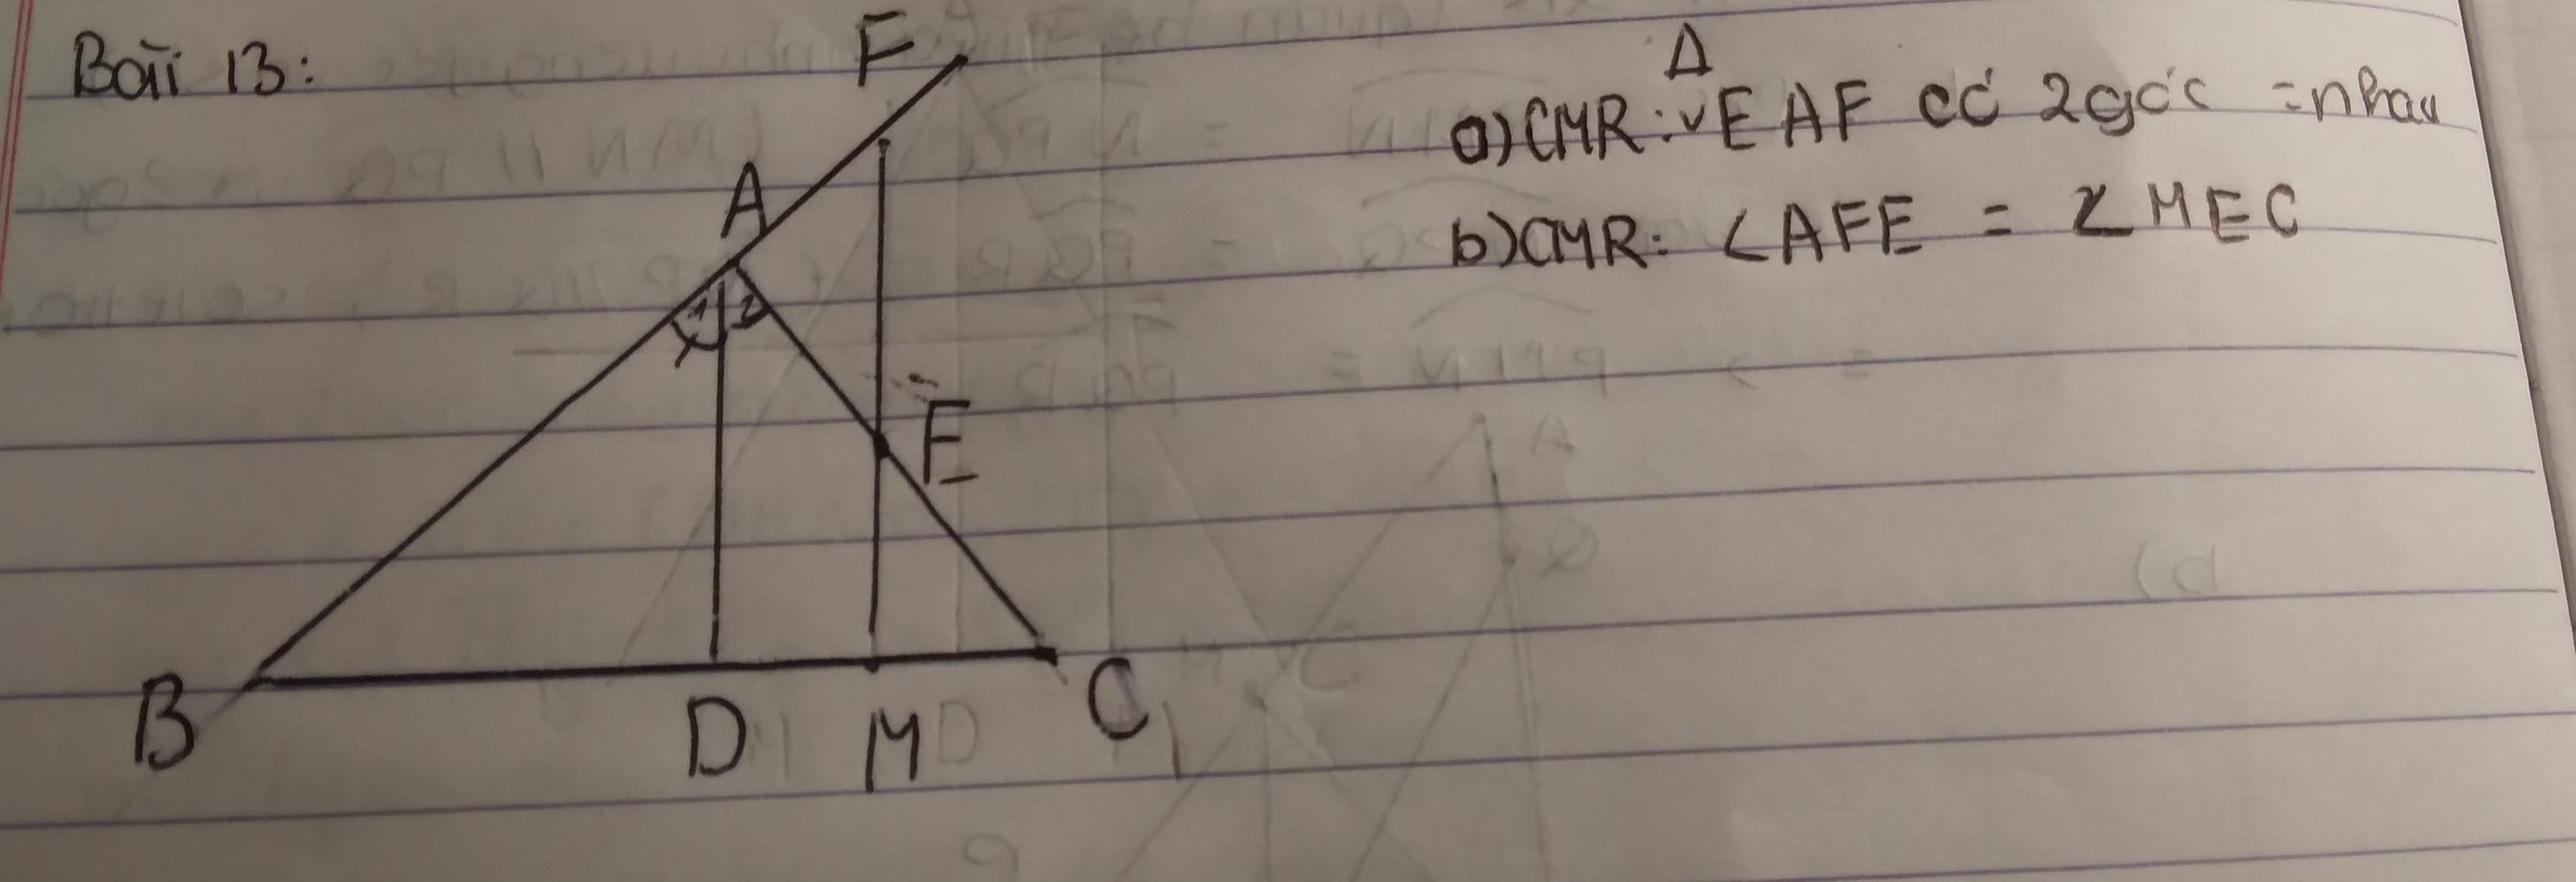 Bài 13:
F
A
1 2
E
B
D
M
C
Δ
a) CMR: ˅EAF có 2 góc = nhau
b) CMR: ∠AFE = ∠MEC